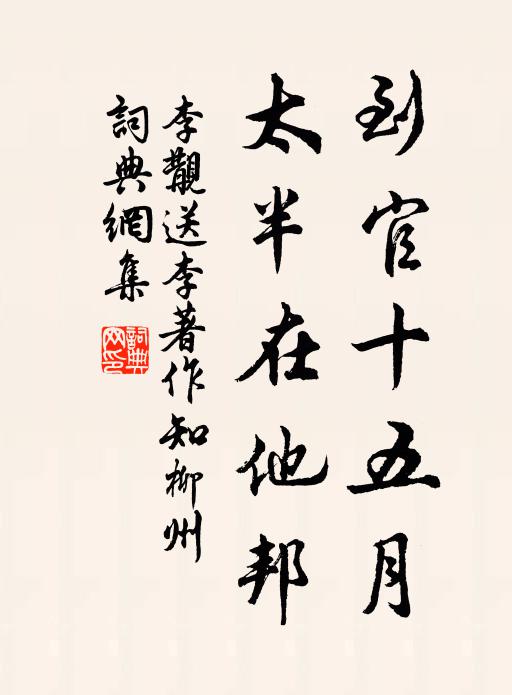 到官十五月
太半在他邦
李觀送李著作知柳州
詞典網集
詞典網印